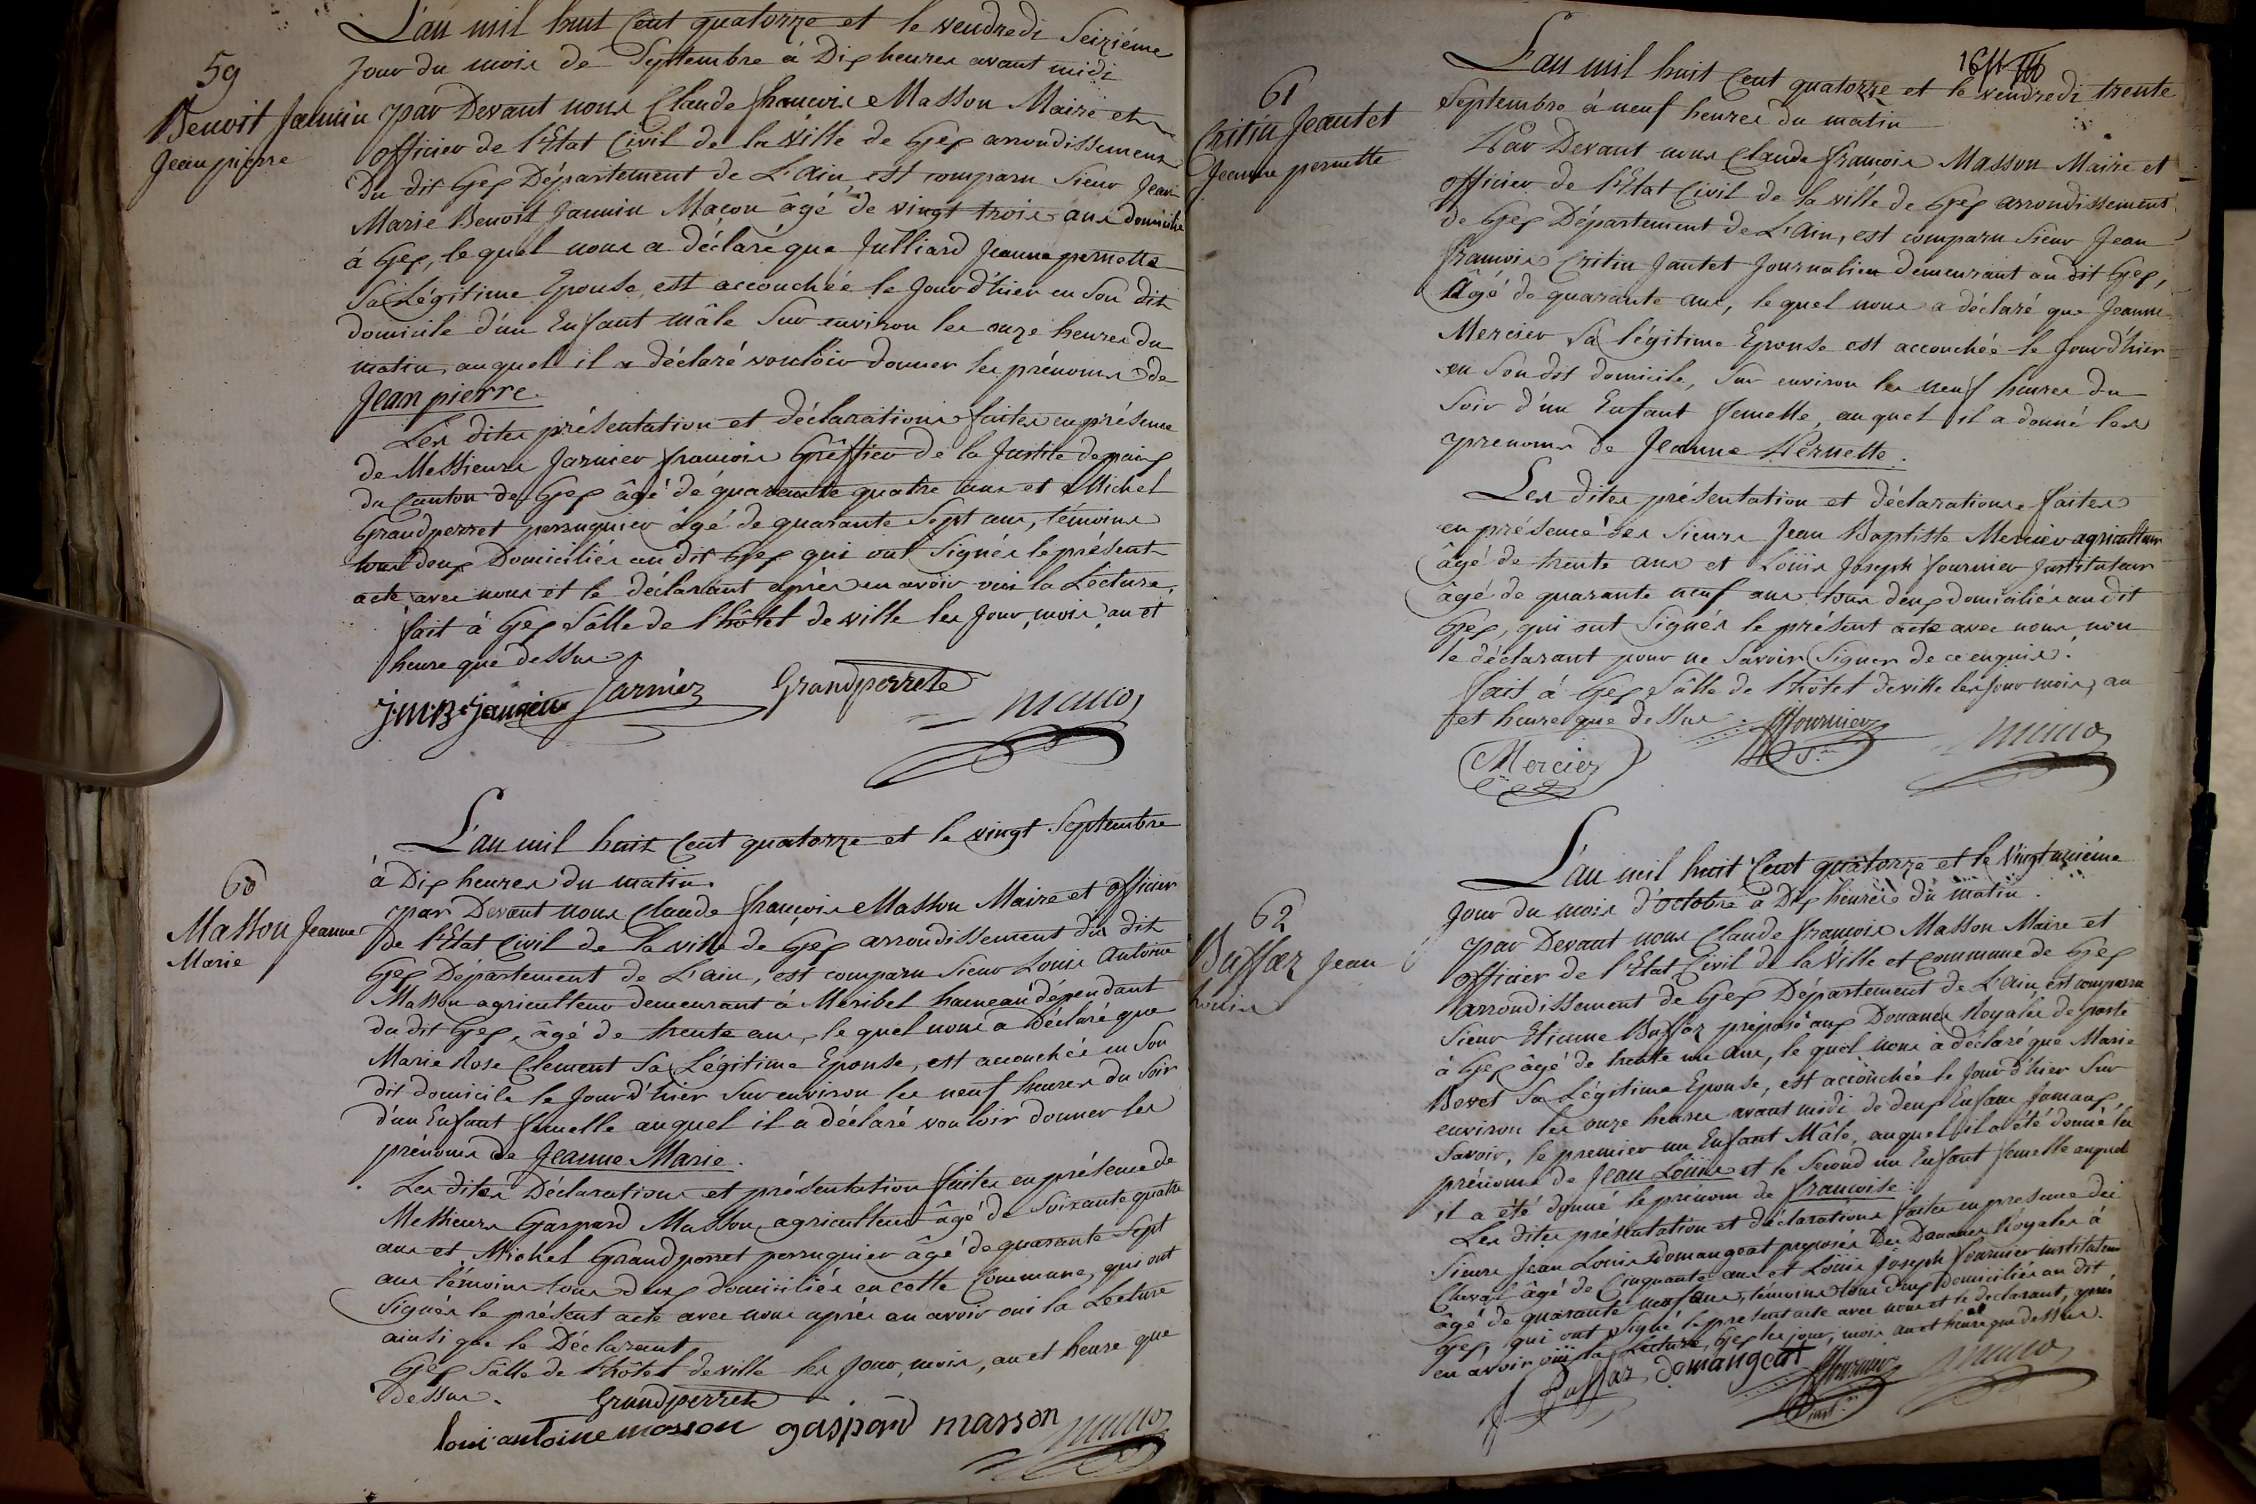 L'an mil huit Cent quatorze et le vendredi Seizième
Jour du mois de Septembre à Dix heures avant midi
59
Benoit Jannin
Jean pierre
par Devant nous Claude françois Masson Maire et
officier de l'Etat Civil de la Ville de Gex arrondissement
du dit Gex Département de L'Ain, est comparu Sieur Jean
Marie Benoit Jannin Maçon âgé de vingt trois ans domicilié
à Gex, lequel nous a déclaré que Julliard Jeanne pernette
Sa Légitime Epouse est accouchée le Jour d'hier en Son dit
domicile d'un Enfant mâle Sur environ les onze heures du
matin, auquel il a déclaré vouloir donner les prénoms de
Jean pierre.
Les dites présentation et déclarations faites en présence
de Messieurs Jarnier françois Greffier de la Justice de paix
du Canton de Gex âgé de quarante quatre ans et Michel
Grandperret perruquier âgé de quarante Sept ans, témoins
tous deux Domiciliés au dit Gex qui ont Signés le présent
acte avec nous et le déclarant après en avoir oui la Lecture,
fait à Gex Salle de l'hôtel de ville les Jour, mois, an et
heure que dessus.
J.M.B. Jannin Jarnier Grandperrete Masson
L'an mil huit Cent quatorze et le vingt Septembre
à Dix heures du matin.
60
Masson Jeanne
Marie
par Devant nous Claude françois Masson Maire et officier
de l'Etat Civil de la ville de Gex arrondissement du dit
Gex Département de L'ain, est comparu Sieur Louis Antoine
Masson agriculteur demeurant à Meribel hameau dépendant
du dit Gex, âgé de trente ans, lequel nous a Déclaré que
Marie Rose Clement Sa Légitime Epouse, est accouchée en Son
dit domicile le Jour d'hier Sur environ les neuf heures du Soir
d'un Enfant femelle auquel il a déclaré vouloir donner les
prénoms de Jeanne Marie.
Les dites Déclarations et présentation faites en présence de
Messieurs Gaspard Masson, agriculteur âgé de Soixante quatre
ans et Michel Grandperret perruquier âgé de quarante Sept
ans témoins tous deux domiciliés en cette Commune, qui ont
Signés le présent acte avec nous après en avoir oui la Lecture
ainsi que le Déclarant
Gex Salle de l'hôtel de ville les Jour, mois, an et heure que
dessus. Grandperrete
loui antoine masson gaspard masson Masson
L'an mil huit Cent quatorze et le vendredi trente
Septembre à neuf heures du matin
61
Critin Jeantet
Jeanne pernette
Par Devant nous Claude françois Masson Maire et
officier de l'Etat Civil de la ville de Gex arrondissement
de Gex Département de L'Ain, est comparu Sieur Jean
françois Critin Jantet Journalier demeurant au dit Gex,
âgé de quarante ans, lequel nous a déclaré que Jeanne
Mercier Sa légitime Epouse est accouchée le Jour d'hier
en Son dit domicile, Sur environ les neuf heures du
Soir d'un Enfant femelle, auquel il a donné les
prenoms de Jeanne Pernette.
Les dites présentation et déclarations faites
en présence des Sieurs Jean Baptiste Mercier agriculteur
âgé de trente ans et Louis Joseph fournier Instituteur
âgé de quarante neuf ans tous deux domiciliés au dit
Gex, qui ont Signés le présent acte avec nous, non
le déclarant pour ne Savoir Signer de ce enquis.
fait à Gex Salle de l'hôtel de ville les Jour mois, an
et heure que dessus. fournier
Mercier Masson
L'an mil huit Cent quatorze et le Vingt unième
Jour du mois d'octobre à Dix heures du matin.
62
Buffaz Jean
Louis
par Devant nous Claude françois Masson Maire et
officier de l'Etat Civil de la Ville et commune de Gex
arrondissement de Gex Département de L'Ain, est comparu
Sieur Etienne Buffaz préposé aux Douanes Royales de poste
à Gex âgé de trente un ans, lequel nous a déclaré que Marie
Bovet Sa Légitime Epouse, est accouchée le Jour d'hier Sur
environ les onze heures avant midi de deux Enfans Jumaux,
Savoir, le premier un Enfant Mâle, auquel il a été donné les
prénoms de Jean Louis et le Second un Enfant femelle auquel
il a été donné le prénom de françoise.
Les dites présentation et déclarations faites en presence des
Sieurs Jean Louis Domangeat preposés Des Douanes Royales à
Cheval âgé de Cinquante ans et Louis Joseph fournier instituteur
âgé de quarante neuf ans, témoins tous deux domiciliés au dit
Gex, qui ont Signé le present acte avec nous et le déclarant, après
en avoir oui la Lecture, Gex les jour, mois an et heure que dessus.
Buffaz domangeat fournier Masson